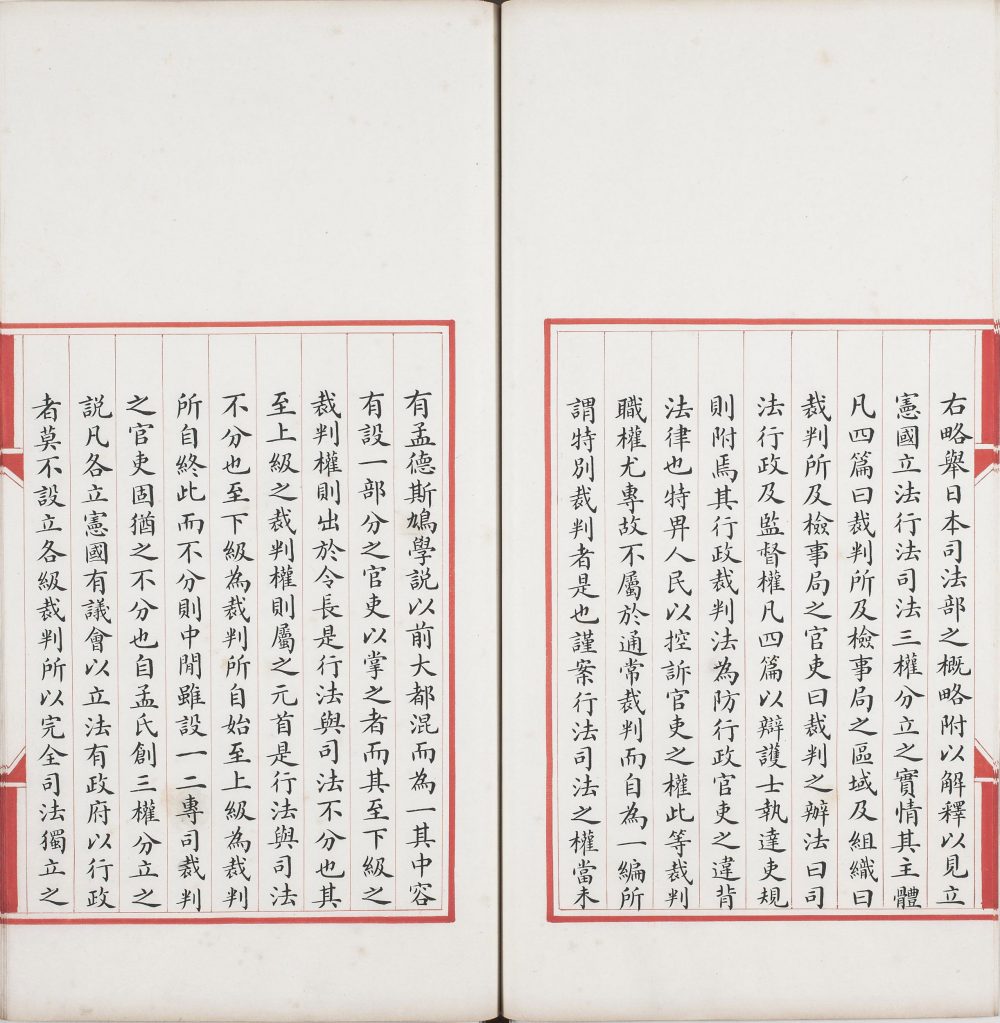 右略舉日本司法部之概略附以解釋以見立
憲國立法行法司法三權分立之實情其主體
凡四篇曰裁判所及檢事局之區域及組織曰
裁判所及檢事局之官吏曰裁判之辦法曰司
法行政及監督權凡四篇以辯護士執達吏規
則附焉其行政裁判法為防行政官吏之違背
法律也特畀人民以控訴官吏之權此等裁判
職權尤專故不屬於通常裁判而自為一編所
謂特別裁判者是也謹案行法司法之權當未
有孟德斯鳩學說以前大都混而為一其中容
有設一部分之官吏以掌之者而其至下級之
裁判權則出於令長是行法與司法不分也其
至上級之裁判權則屬之元首是行法與司法
不分也至下級為裁判所自始至上級為裁判
所自終此而不分則中間雖設一二專司裁判
之官吏固猶之不分也自孟氏創三權分立之
說凡各立憲國有議會以立法有政府以行政
者莫不設立各級裁判所以完全司法獨立之